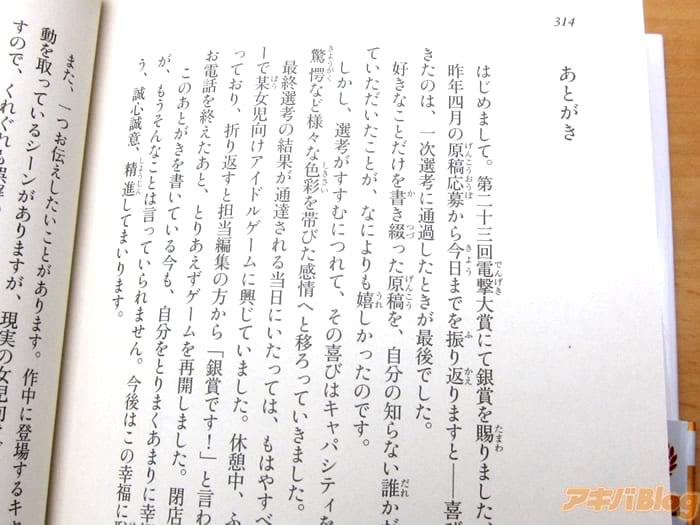 314
あとがき
はじめまして。第二十三回電撃大賞にて銀賞を賜りました、
昨年四月の原稿応募から今日までを振り返りますと――喜び
きたのは、一次選考に通過したときが最後でした。
好きなことだけを書き綴った原稿を、自分の知らない誰かが
ていただいたことが、なによりも嬉しかったのです。
しかし、選考がすすむにつれて、その喜びはキャパシティを
驚愕など様々な色彩を帯びた感情へと移ろっていきました。
最終選考の結果が通達される当日にいたっては、もはやすべ
ーで某女児向けアイドルゲームに興じていました。休憩中、ふ
っており、折り返すと担当編集の方から「銀賞です！」と言わ
お電話を終えたあと、とりあえずゲームを再開しました。閉店
このあとがきを書いている今も、自分をとりまくあまりに幸
が、もうそんなことは言っていられません。今後はこの幸福に
う、誠心誠意、精進してまいります。
また、一つお伝えしたいことがあります。作中に登場するキャ
動を取っているシーンがありますが、現実の女児向
すので、くれぐれも誤解
アキバBlog